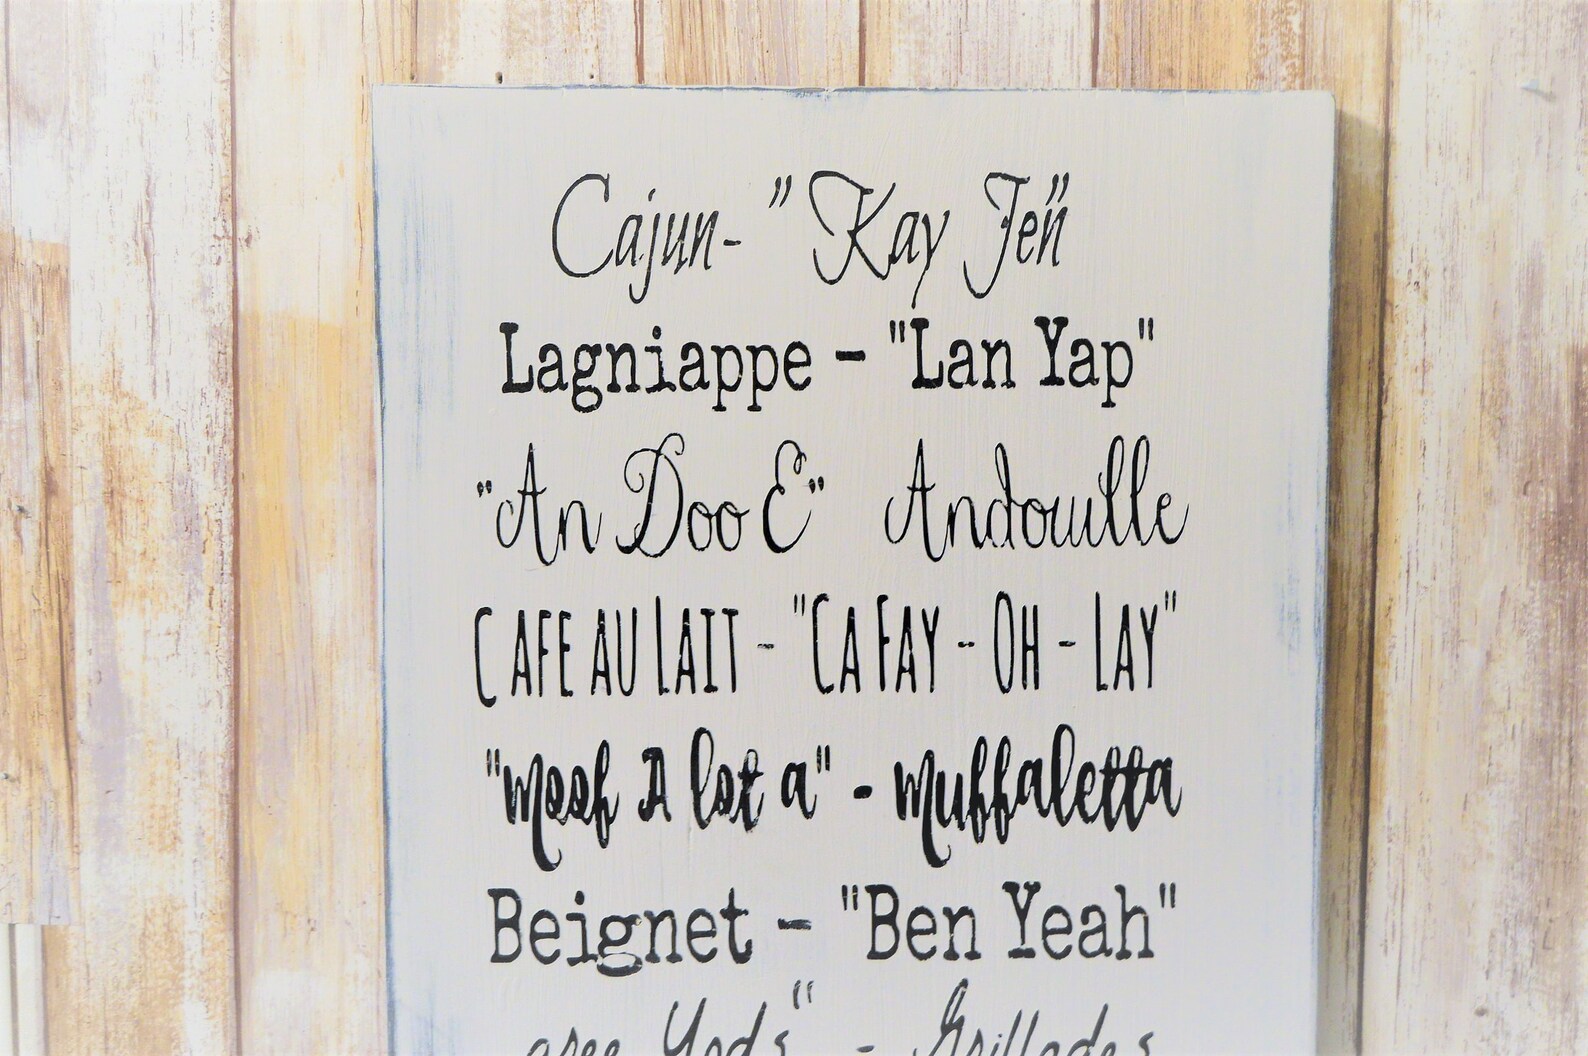 Cajun- "Kay Jen"
Lagniappe - "Lan Yap"
"An Doo E" Andouille
CAFE AU LAIT - "CA FAY - OH - LAY"
"moof A lot a" - muffaletta
Beignet - "Ben Yeah"
Yods" - Grillades